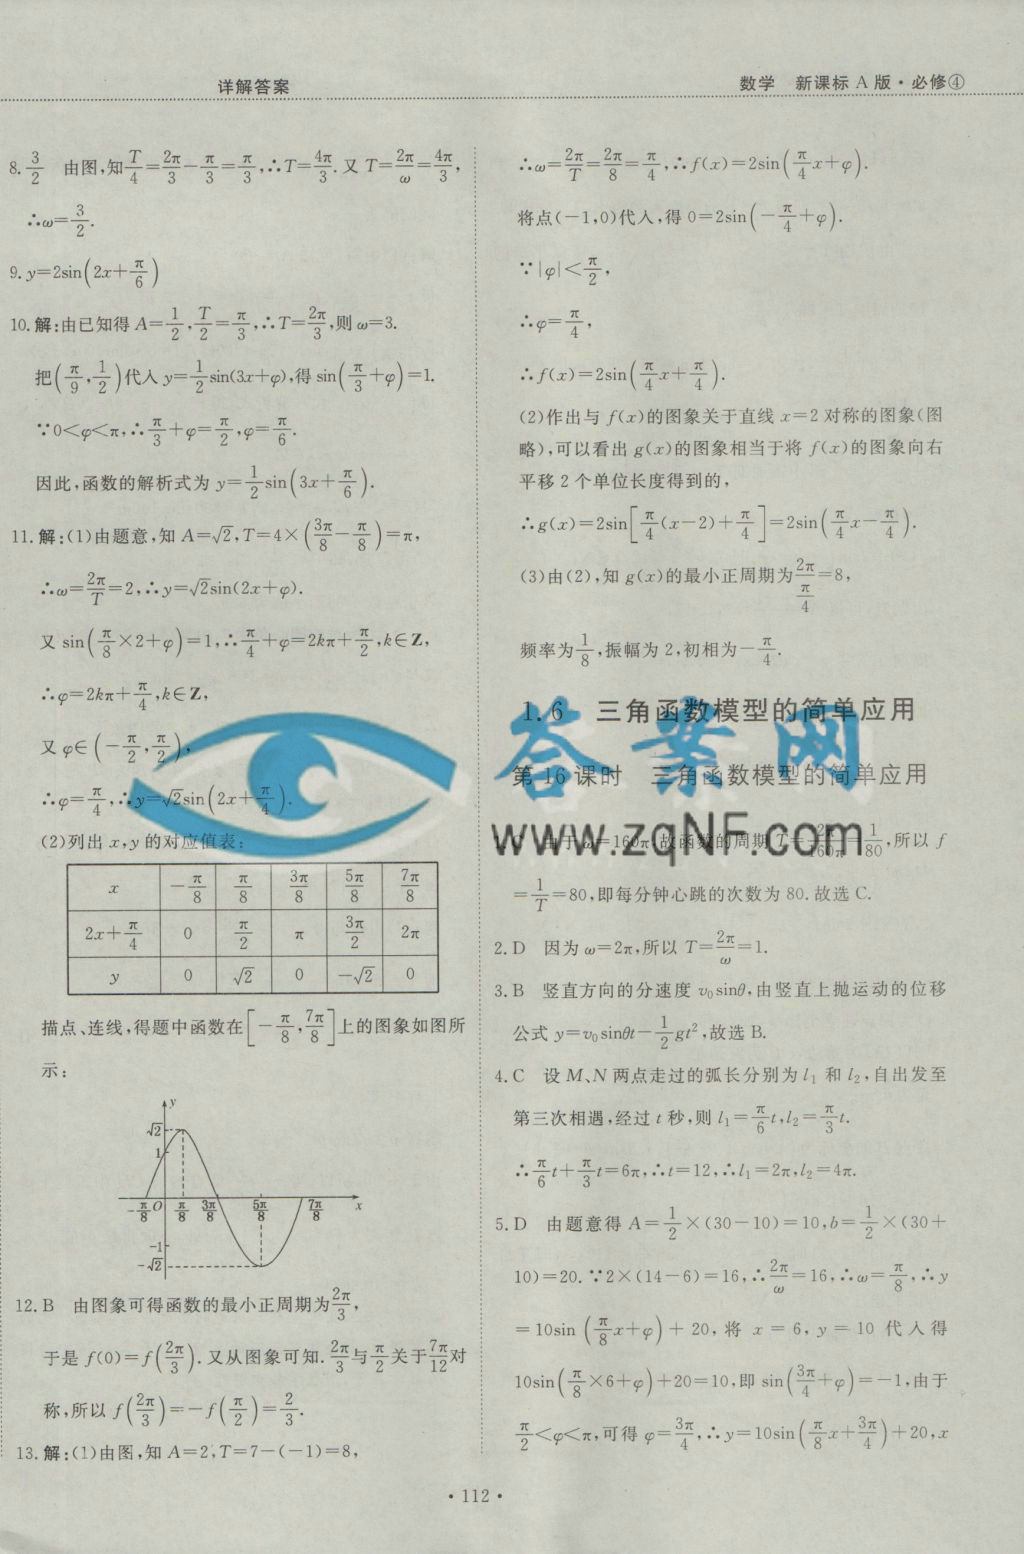 详解答案
数学 新课标 A 版·必修④
8. 3/2 由图,知T/4=2π/3-π/3=π/3,∴T=4π/3.又 T=2π/ω=4π/3,
∴ω=3/2.
9. y=2sin(2x+π/6)
10. 解:由已知得 A=1/2,T/2=π/3,∴T=2π/3,则 ω=3.
把(π/9,1/2)代入 y=1/2sin(3x+φ),得 sin(π/3+φ)=1.
∵0<φ<π,∴π/3+φ=π/2,φ=π/6.
因此,函数的解析式为 y=1/2sin(3x+π/6).
11. 解:(1)由题意,知 A=√2,T=4×(3π/8-π/8)=π,
∴ω=2π/T=2,∴y=√2sin(2x+φ).
又 sin(π/8×2+φ)=1,∴π/4+φ=2kπ+π/2,k∈Z,
∴φ=2kπ+π/4,k∈Z,
又 φ∈(-π/2,π/2),
∴φ=π/4,∴y=√2sin(2x+π/4).
(2)列出 x,y 的对应值表:
x -π/8 π/8 3π/8 5π/8 7π/8
2x+π/4 0 π/2 π 3π/2 2π
y 0 √2 0 -√2 0
描点、连线,得题中函数在[-π/8,7π/8]上的图象如图所
示:
y
√2
1
-π/8 O π/8 3π/8 5π/8 7π/8 x
-1
-√2
12. B 由图象可得函数的最小正周期为2π/3,
于是 f(0)=f(2π/3).又从图象可知.2π/3与π/2关于7π/12对
称,所以 f(2π/3)=-f(π/2)=2/3.
13. 解:(1)由图,知 A=2,T=7-(-1)=8,
∴ω=2π/T=2π/8=π/4,∴f(x)=2sin(π/4x+φ).
将点(-1,0)代入,得 0=2sin(-π/4+φ).
∵|φ|<π/2,
∴φ=π/4,
∴f(x)=2sin(π/4x+π/4).
(2)作出与 f(x)的图象关于直线 x=2 对称的图象(图
略),可以看出 g(x)的图象相当于将 f(x)的图象向右
平移 2 个单位长度得到的,
∴g(x)=2sin[π/4(x-2)+π/4]=2sin(π/4x-π/4).
(3)由(2),知 g(x)的最小正周期为2π/(π/4)=8,
频率为1/8,振幅为 2,初相为-π/4.
1.6 三角函数模型的简单应用
第 16 课时 三角函数模型的简单应用
答案网
www.zqNF.com
1. C 由于 ω=160π,故函数的周期 T=2π/160π=1/80,所以 f
=1/T=80,即每分钟心跳的次数为 80.故选 C.
2. D 因为 ω=2π,所以 T=2π/ω=1.
3. B 竖直方向的分速度 v₀sinθ,由竖直上抛运动的位移
公式 y=v₀sinθt-1/2gt²,故选 B.
4. C 设 M、N 两点走过的弧长分别为 l₁ 和 l₂,自出发至
第三次相遇,经过 t 秒,则 l₁=π/6t,l₂=π/3t.
∴π/6t+π/3t=6π,∴t=12,∴l₁=2π,l₂=4π.
5. D 由题意得 A=1/2×(30-10)=10,b=1/2×(30+
10)=20.∵2×(14-6)=16,∴2π/ω=16,∴ω=π/8,∴y
=10sin(π/8x+φ)+20,将 x=6,y=10 代入得
10sin(π/8×6+φ)+20=10,即 sin(3π/4+φ)=-1,由于
π/2<φ<π,可得 φ=3π/4,∴y=10sin(π/8x+3π/4)+20,x
·112·